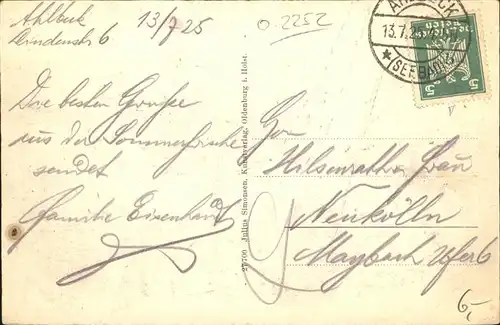 Ahlbeck 13/7 25
Lindenstr 6
O.2252
Die besten Grüsse
aus der Sommerfrische
sendet
Familie Eisenhardt
25700 Julius Simonsen, Kunstverlag, Oldenburg i. Holst.
AHLBECK
13.7.25
(SEEBAD)
5 5
Hilsenrath u. Frau
Neukölln
Maybach Ufer 6
6,-